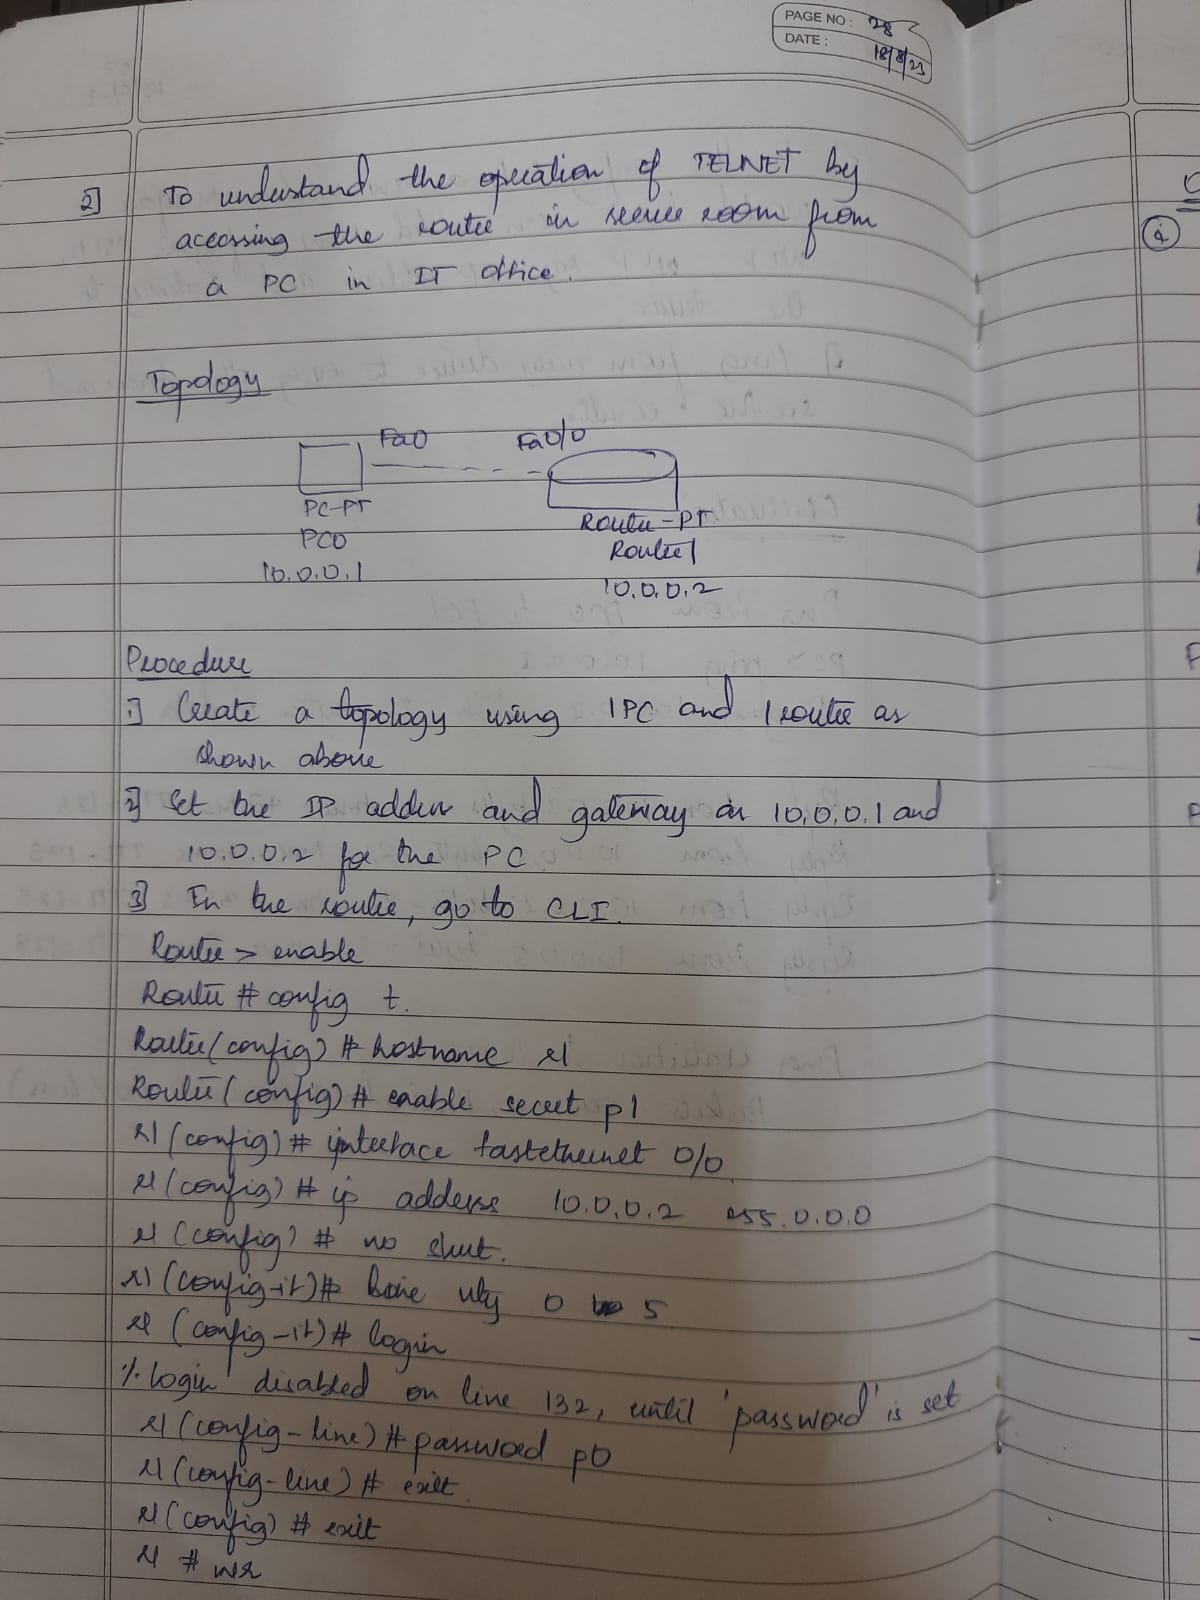 PAGE NO: 28
DATE: 18/8/23
2] To understand the operation of TELNET by
accessing the router in server room from
a PC in IT office.
Topology
Fa0 Fa0/0
PC-PT Router-PT
PC0 Router1
10.0.0.1 10.0.0.2
Procedure
1] Create a topology using 1PC and 1 router as
shown above
2] Set the IP address and gateway as 10.0.0.1 and
10.0.0.2 for the PC
3] In the router, go to CLI.
Router > enable
Router # config t.
Router(config) # hostname r1
Router(config) # enable secret p1
r1 (config) # interface fastethernet 0/0
r1 (config) # ip address 10.0.0.2 255.0.0.0
r1 (config) # no shut.
r1 (config-if) # line vty 0 5
r1 (config-if) # login
% login disabled on line 132, until 'password' is set
r1 (config-line) # password p0
r1 (config-line) # exit
r1 (config) # exit
r1 # wr